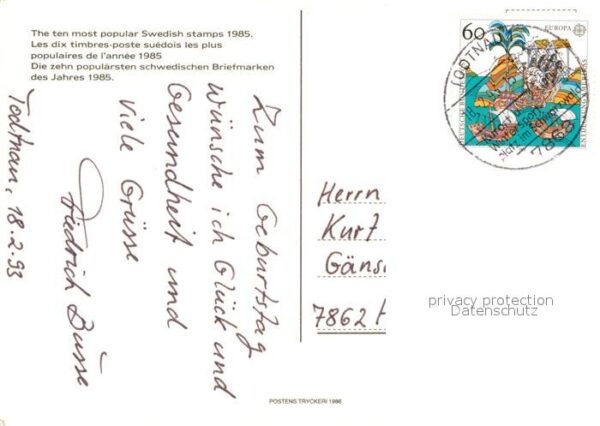 The ten most popular Swedish stamps 1985.
Les dix timbres-poste suédois les plus
populaires de l'année 1985
Die zehn populärsten schwedischen Briefmarken
des Jahres 1985.
Todtnau, 18.2.93
Zum Geburtstag
wünsche ich Glück und
Gesundheit und
viele Grüsse
Friedrich Büsse
60
EUROPA
TODTNAU
7868
Herrn
Kurt
Gäns
7862 H
privacy protection
Datenschutz
POSTENS TRYCKERI 1986